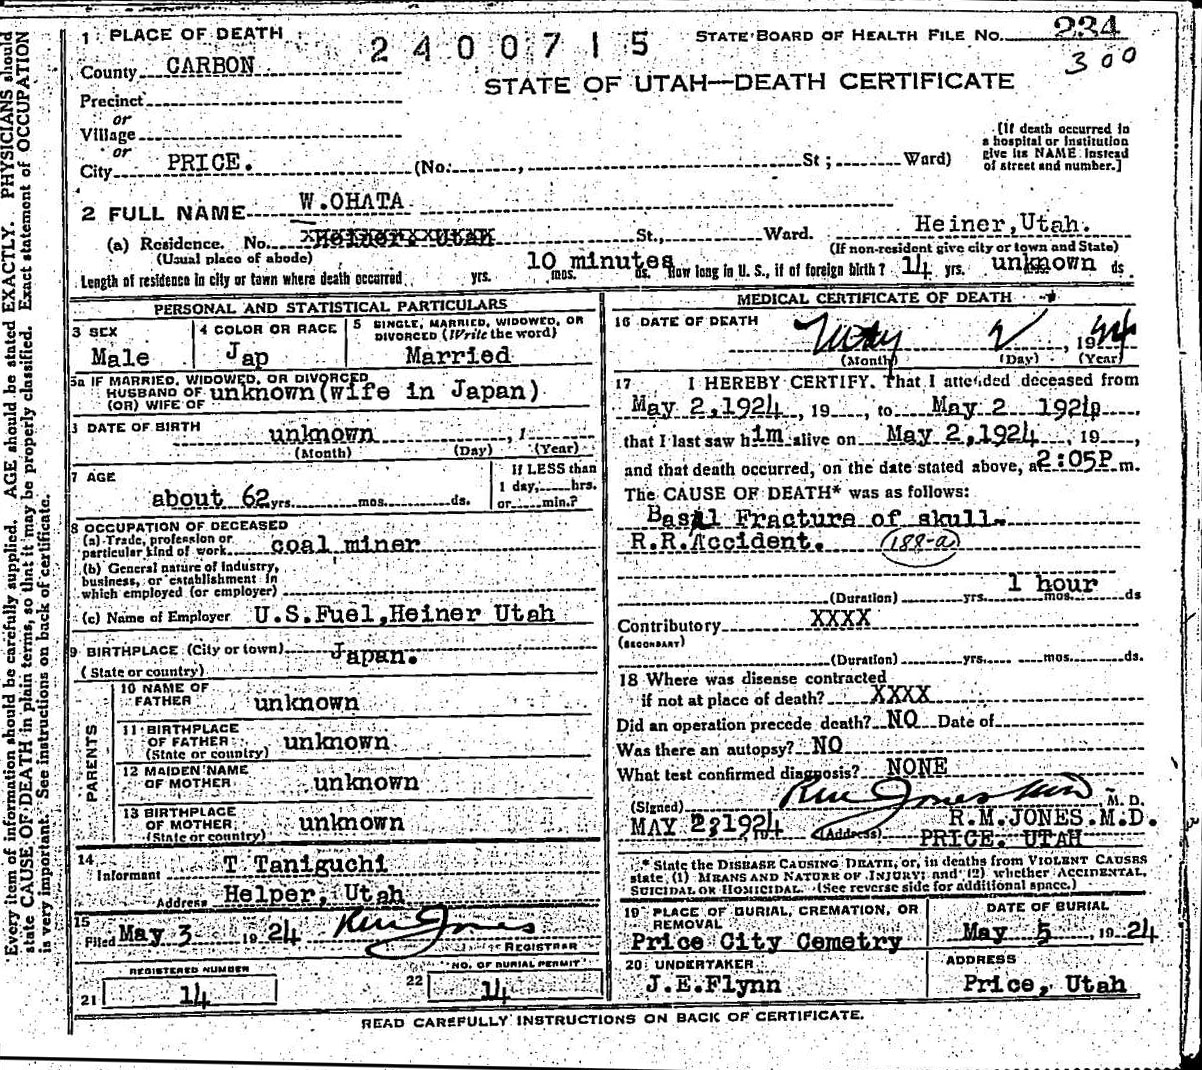 1 PLACE OF DEATH
2400715
STATE BOARD OF HEALTH FILE No. 234
300
County CARBON
STATE OF UTAH—DEATH CERTIFICATE
Precinct
or
Village
or
City PRICE. (No. , St ; Ward)
[If death occurred in
a hospital or institution
give its NAME instead
of street and number.]
2 FULL NAME W.OHATA
(a) Residence. No. Heiner, Utah St., Ward. Heiner,Utah.
(Usual place of abode)
(If non-resident give city or town and State)
Length of residence in city or town where death occurred yrs. 10 minutes mos. ds. How long in U. S., if of foreign birth? 14 yrs. unknown mos. ds
PERSONAL AND STATISTICAL PARTICULARS
3 SEX
Male
4 COLOR OR RACE
Jap
5 SINGLE, MARRIED, WIDOWED, OR
DIVORCED (Write the word)
Married
5a IF MARRIED, WIDOWED, OR DIVORCED
HUSBAND OF unknown(wife in Japan)
(OR) WIFE OF
6 DATE OF BIRTH unknown , 1
(Month) (Day) (Year)
7 AGE
about 62 yrs. mos. ds.
If LESS than
1 day, hrs.
or min.?
8 OCCUPATION OF DECEASED
(a) Trade, profession or
particular kind of work coal miner
(b) General nature of industry,
business, or establishment in
which employed (or employer)
(c) Name of Employer U.S.Fuel,Heiner Utah
9 BIRTHPLACE (City or town) Japan.
(State or country)
PARENTS
10 NAME OF
FATHER unknown
11 BIRTHPLACE
OF FATHER unknown
(State or country)
12 MAIDEN NAME
OF MOTHER unknown
13 BIRTHPLACE
OF MOTHER unknown
(State or country)
14
Informant T Taniguchi
Address Helper, Utah
15
Filed May 3 1924 RM Jones
REGISTRAR
REGISTERED NUMBER
21 14
NO. OF BURIAL PERMIT
22 14
MEDICAL CERTIFICATE OF DEATH
16 DATE OF DEATH
May 2, 1924
(Month) (Day) (Year)
17 I HEREBY CERTIFY. That I attended deceased from
May 2,1924, 19 , to May 2 1924,
that I last saw him alive on May 2,1924, 19 ,
and that death occurred, on the date stated above, at 2:05P m.
The CAUSE OF DEATH* was as follows:
Basal Fracture of skull.
R.R.Accident. (188-a)
1 hour
(Duration) yrs. mos. ds
Contributory XXXX
(SECONDARY)
(Duration) yrs. mos. ds.
18 Where was disease contracted
if not at place of death? XXXX
Did an operation precede death? NO Date of
Was there an autopsy? NO
What test confirmed diagnosis? NONE
(Signed) RM Jones MD M. D.
MAY 2,1924 (Address) R.M.JONES.M.D.
PRICE. UTAH
* State the DISEASE CAUSING DEATH, or, in deaths from VIOLENT CAUSES
state, (1) MEANS AND NATURE OF INJURY; and (2) whether ACCIDENTAL,
SUICIDAL OR HOMICIDAL. (See reverse side for additional space.)
19 PLACE OF BURIAL, CREMATION, OR
REMOVAL
Price City Cemetry
DATE OF BURIAL
May 5, 1924
20 UNDERTAKER
J.E.Flynn
ADDRESS
Price, Utah
READ CAREFULLY INSTRUCTIONS ON BACK OF CERTIFICATE.
Every item of information should be carefully supplied. AGE should be stated EXACTLY. PHYSICIANS should
state CAUSE OF DEATH in plain terms, so that it may be properly classified. Exact statement of OCCUPATION
is very important. See instructions on back of certificate.